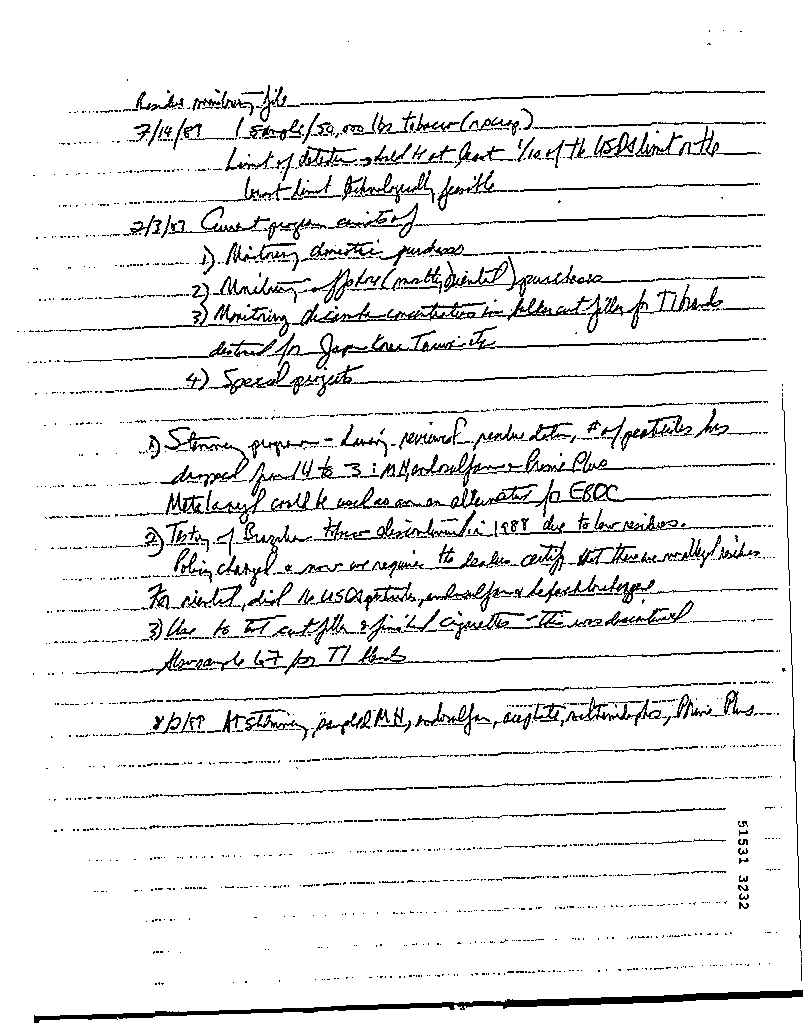 Residue monitoring file
7/19/87 1 sample/50,000 lbs tobacco
Limit of detection should be at least 1/10 of the USDA limit or the
lowest limit technologically feasible
2/3/87 Current program consists of
1) Monitoring domestic purchases
2) Monitoring offshore (mostly oriental) purchases
3) Monitoring dicamba concentrations in cut filler for TI brands
destined for Japan Korea
4) Special projects
1) Stemmery program - having reviewed residue data, # of pesticides has
dropped from 14 to 3: MH endosulfan & Prime Plus
Metalaxyl could be used as an alternative for EBDC
2) Testing of Brazilian tobacco discontinued in 1988 due to low residues.
Policy changed & now we require the dealers certify that there are residues
For oriental, did 16 USDA pesticides, endosulfan &
3) Use to test cut filler & finished cigarettes - this was discontinued
for TI
8/2/88 At stemmery, sampled MH, endosulfan, acephate, methamidophos, Prime Plus
51531 3232